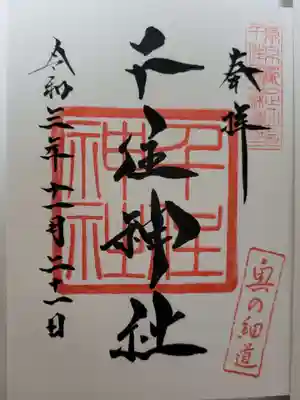 奉拝
奥の細道
千住神社
千住
神社
令和三年十一月二十一日